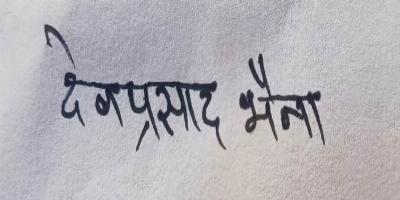 देवप्रसाद मैना